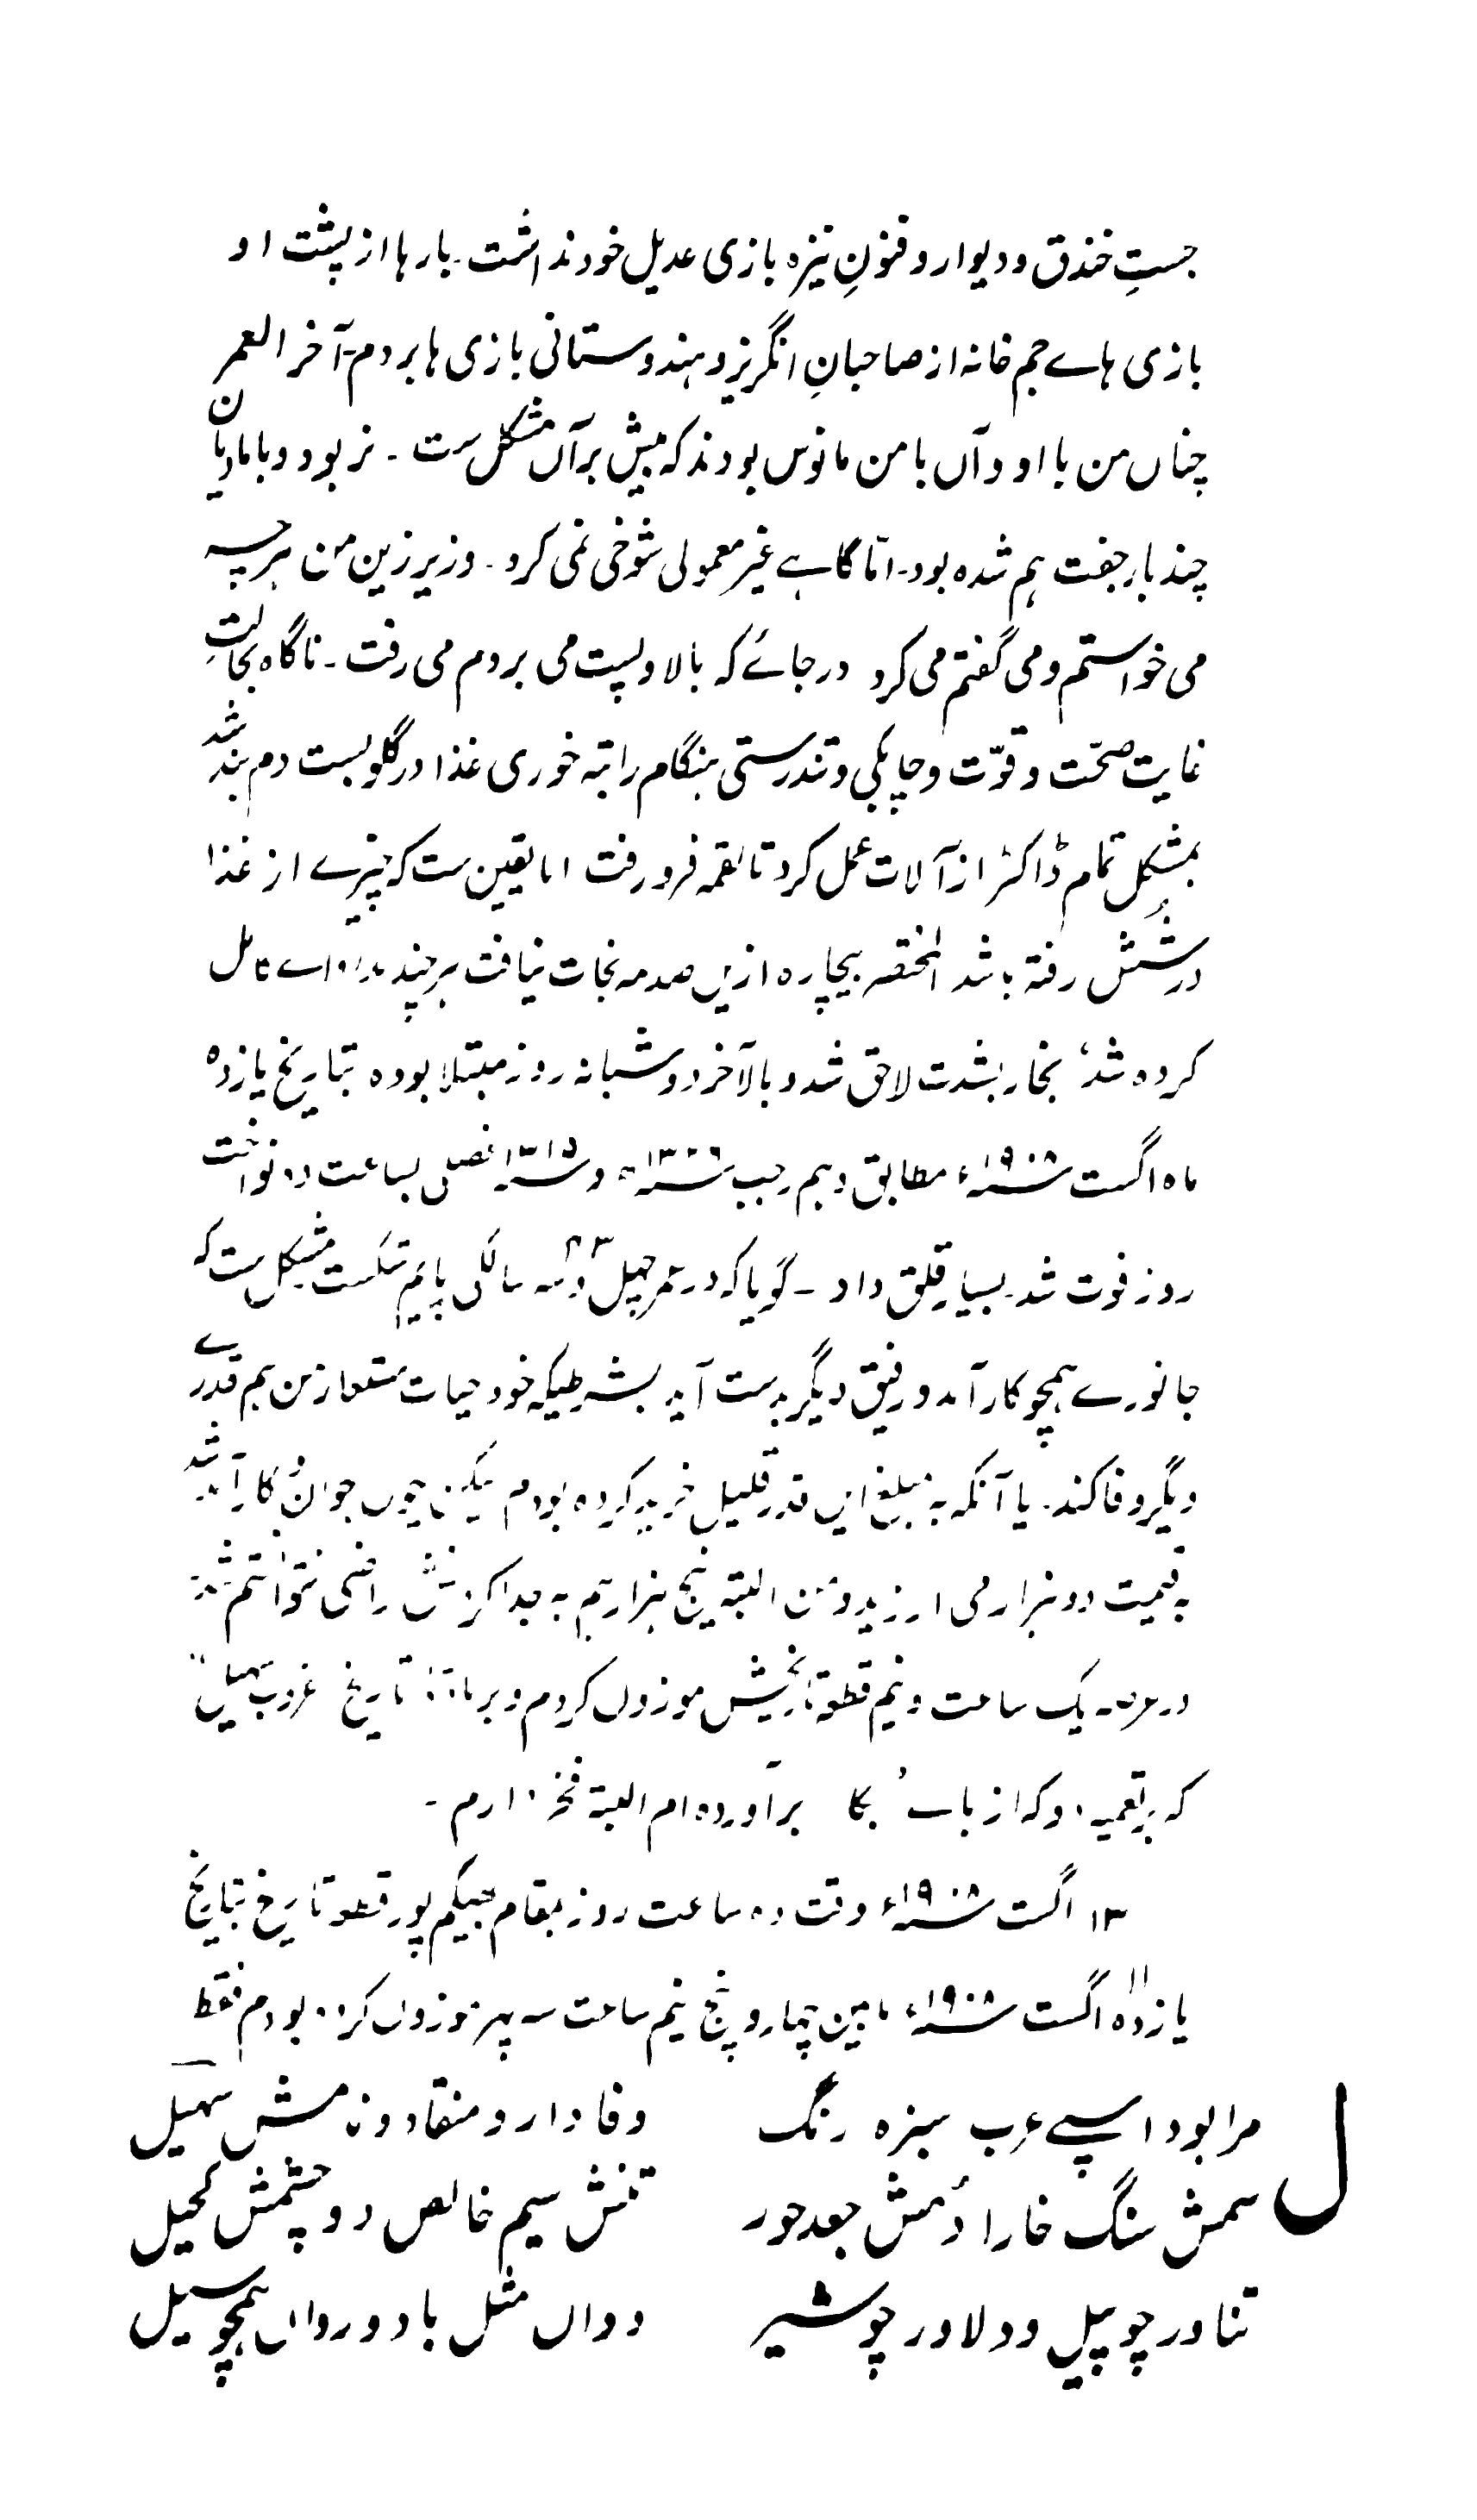 جستِ خندق و دیوار و فنونِ نیزہ بازی عدیل خود نداشت۔ بارہا از پشت او
بازی ہاے جم خانہ از صاحبانِ انگریز و ہندوستانی بازی ہا بردم۔ آخر العمر
چناں من با او و آں با من مانوس بودند کہ بیش برآں مشکل ست۔ نر بود و با مادیان
چند بار جفت ہم شدہ بود۔ امّا گاہے غیر معمولی شوخی نمی کرد۔ و زیر زین من ہرچہ
می خواستم و می گفتم می کرد در جائے کہ بالا و پست می بردم می رفت۔ ناگاہ بحالتِ
غایت صحّت و قوّت و چابکی و تندرستی ہنگام راتبہ خوری غذا در گلو بست دم بند شد
بمشکل تمام ڈاکٹر از آلات عمل کرد تا لقمہ فرو رفت اما یقین ست کہ چیزے از غذا
در شُش رفتہ باشد المختصر بیچارہ ازیں صدمہ نجات نیافت ہرچند مداواے کامل
کردہ شد، بخار بشدت لاحق شد و بالآخر دو شبانہ روز مبتلا بودہ بتاریخ یازدہ
ماہ اگست ۱۹۰۸ء مطابق دہم رجب ۱۳۲۶ھ و ۱۳۱۵ فصلی بساعت دہ نواخت
روز فوت شد۔ بسیار قلق داد۔ گویا کہ در عمر چہل و سہ سالگی پایم شکست مشکل ست کہ
جانورے ہمچو کار آمد و رفیق دیگر بدست آید بشرطیکہ خود حیات مستعار من ہم قدرے
دیگر وفا کند۔ با آنکہ بہ مبلغ ایں قدر قلیل خرید کردہ بودم لیکن چوں جوان و کار آمد شد
بہ قیمت دو ہزار می ارزید و من البتہ پنج ہزار ہم بہ جدا کردنش راضی نتوانستم شد
در عرصہ یک ساعت و نیم قطعۂ تاریخش موزوں کردم و بر مادۂ تاریخ غروب سہیل
کہ بتعمیہ دو کہ از باب بکا برآوردہ ام البتہ فخر دارم۔
۱۳ اگست ۱۹۰۸ء وقت دہ ساعت روز بمقام بھیکم پور قطعہ تاریخ بتاریخ
یازدہ اگست ۱۹۰۸ء مابین چہار و پنج نیم ساعت سہ پہر موزوں کردہ بودم فقط
مرا بود اسپے عرب سبزہ رنگ وفادار و منقاد و نامش سہیل
سمش سنگ خارا دُمش جعد حور تنش سیم خالص دو چشمش کحیل
تناور چو پیل و دلاور چو شیر دواں مثل باد و رواں ہمچو سیل
ل